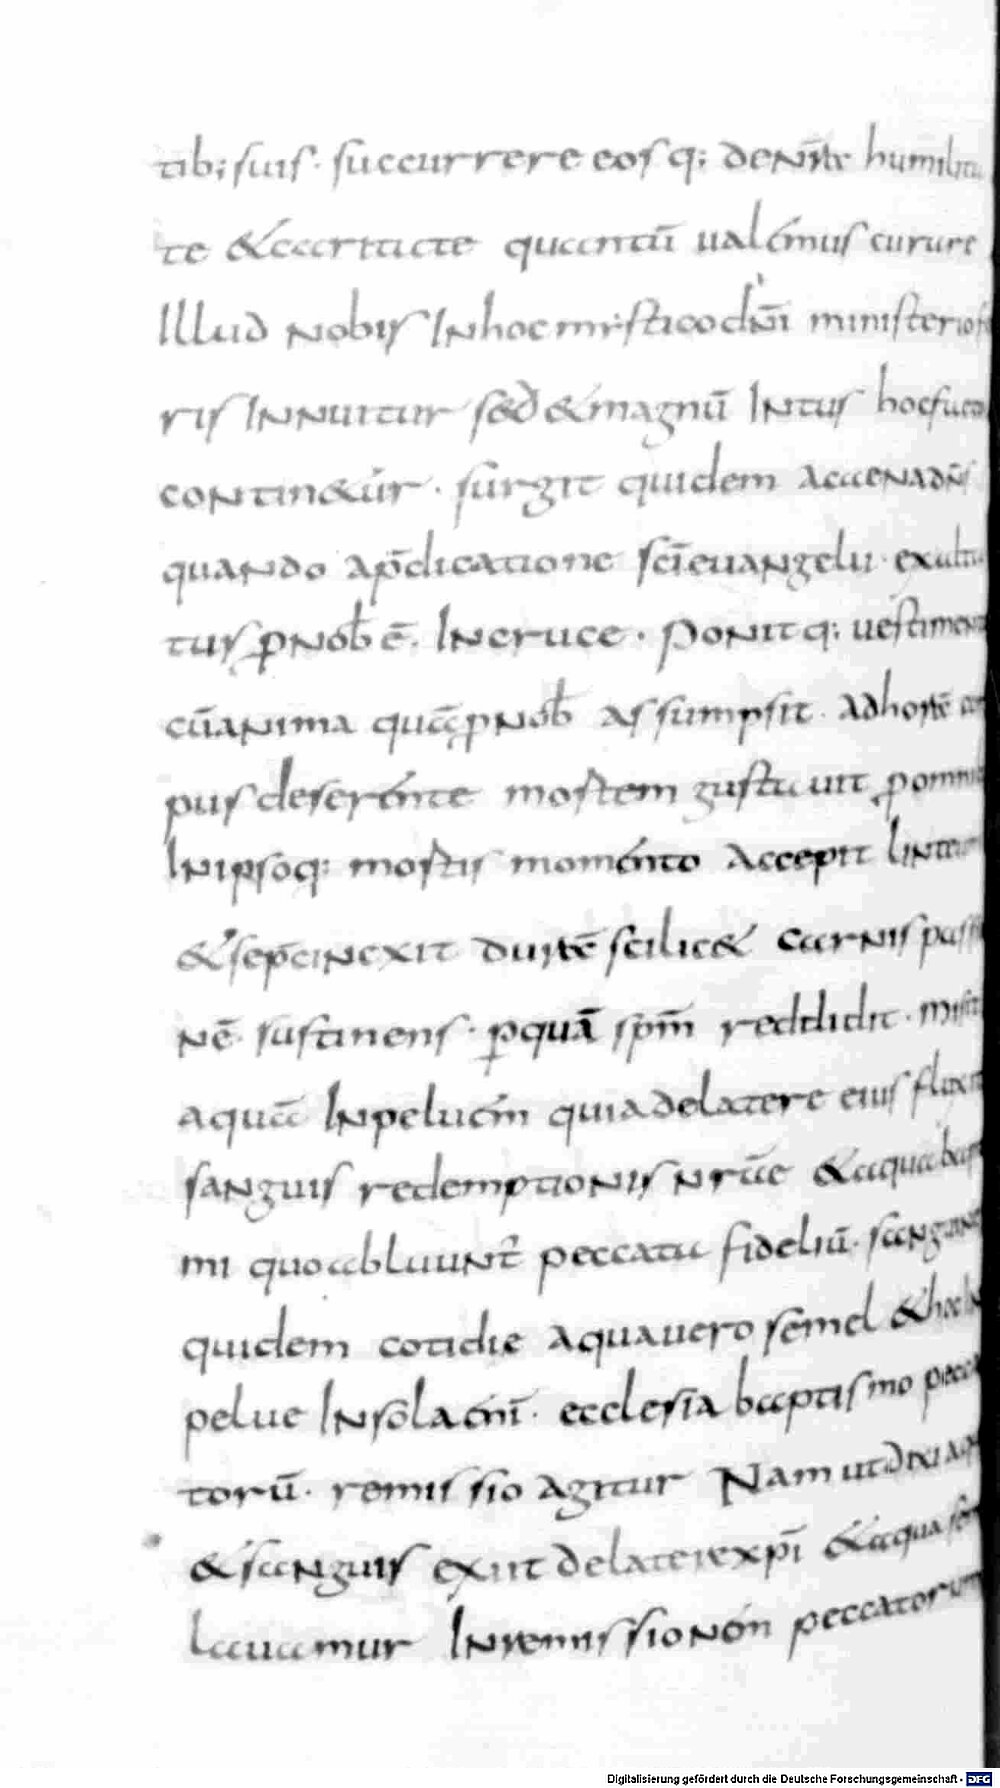 tib; suis · succurrere eos q; de nr̄a humilita
te & caritate quantū ualemus curare
Illud nobis In hoc mistico dn̄i ministerio
ris Innuitur sed & magnū Intus hoc
contin&ur · surgit quidem a cena dn̄s
quando ap̄dicatione sc̄i euangelii · exalta
tus p nob ē · In cruce · ponit q; uestiment
cū anima quā p nob assumpsit · ad horā cor
pus deserente mortem gustauit p omnib
In ipso q; mortis momento accepit linteum
& sep̄cinexit duritē scilic& carnis passio
nē sustinens · p quā sp̄m reddidit · misit
aquā In peluem quia de latere eius fluxit
sanguis redemptionis nr̄ae & aqua bapt
mi quo abluunt̄ peccata fideliū · sanguine
quidem cotidie aqua uero semel & hoc In
pelue In sola eni · ecclesia baptismo pecca
torū · remissio agitur Nam ut dixi aqua
& sanguis exiit de latere xp̄i & aqua
lauamur In remissionem peccatorum
Digitalisierung gefördert durch die Deutsche Forschungsgemeinschaft - DFG